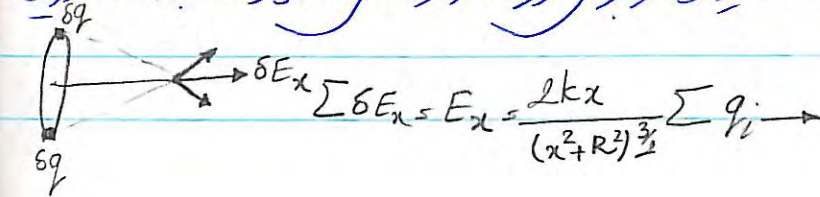 δq
δEₓ ΣδEₓ = Eₓ = 2kx / (x² + R²)^{3/2} Σ qᵢ →
δq